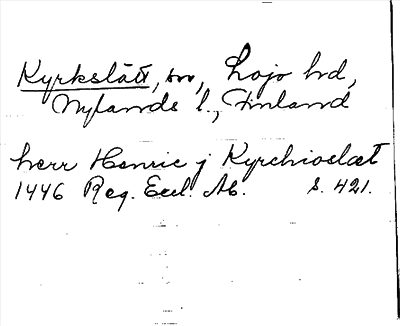 Kyrkslätt, sn, Lojo hd,
Nylands l., Finland
herr Henric j Kyrchioslæt
1446 Reg. Eccl. Ab. S. 421.